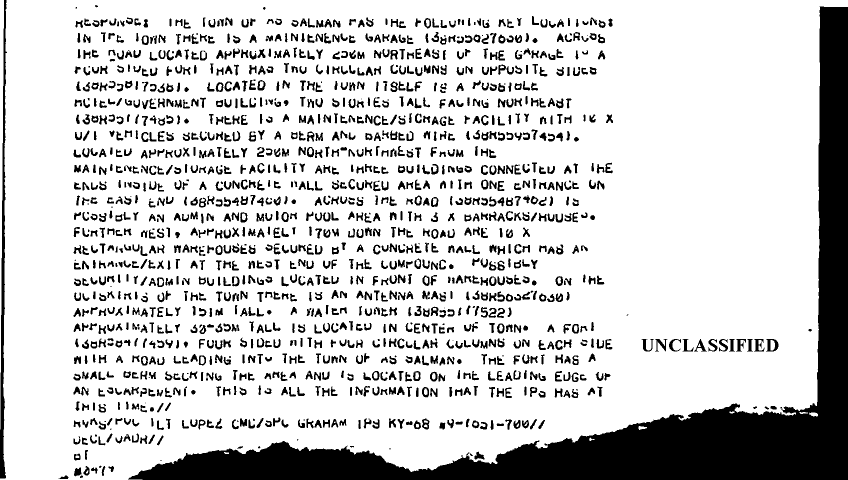 RESPONSE: THE TOWN OF AS SALMAN HAS THE FOLLOWING KEY LOCATIONS:
IN THE TOWN THERE IS A MAINTENENCE GARAGE ACROSS
THE ROAD LOCATED APPROXIMATELY 250M NORTHEAST OF THE GARAGE IS A
FOUR SIDED FORT THAT HAS TWO CIRCULAR COLUMNS ON OPPOSITE SIDES
LOCATED IN THE TOWN ITSELF IS A POSSIBLE
HOTEL/GOVERNMENT BUILDING, TWO STORIES TALL FACING NORTHEAST
THERE IS A MAINTENENCE/STORAGE FACILITY WITH 10 X
U/I VEHICLES SECURED BY A BERM AND BARBED WIRE
LOCATED APPROXIMATELY 250M NORTH-NORTHWEST FROM THE
MAINTENENCE/STORAGE FACILITY ARE THREE BUILDINGS CONNECTED AT THE
ENDS INSIDE OF A CONCRETE WALL SECURED AREA WITH ONE ENTRANCE ON
THE EAST END ACROSS THE ROAD IS
POSSIBLY AN ADMIN AND MOTOR POOL AREA WITH 3 X BARRACKS/HOUSES.
FURTHER WEST, APPROXIMATELY 170M DOWN THE ROAD ARE 10 X
RECTANGULAR WAREHOUSES SECURED BY A CONCRETE WALL WHICH HAS AN
ENTRANCE/EXIT AT THE WEST END OF THE COMPOUND. POSSIBLY
SECURITY/ADMIN BUILDINGS LOCATED IN FRONT OF WAREHOUSES. ON THE
OUTSKIRTS OF THE TOWN THERE IS AN ANTENNA MAST
APPROXIMATELY 151M TALL. A WATER TOWER
APPROXIMATELY 30-35M TALL IS LOCATED IN CENTER OF TOWN. A FORT
FOUR SIDED WITH FOUR CIRCULAR COLUMNS ON EACH SIDE
WITH A ROAD LEADING INTO THE TOWN OF AS SALMAN. THE FORT HAS A
SMALL BERM SECURING THE AREA AND IS LOCATED ON THE LEADING EDGE OF
AN ESCARPEMENT. THIS IS ALL THE INFORMATION THAT THE IPS HAS AT
THIS TIME.//
1LT LOPEZ CMD/SPC GRAHAM IPS KY-68
DECL/OADR//
BT
UNCLASSIFIED